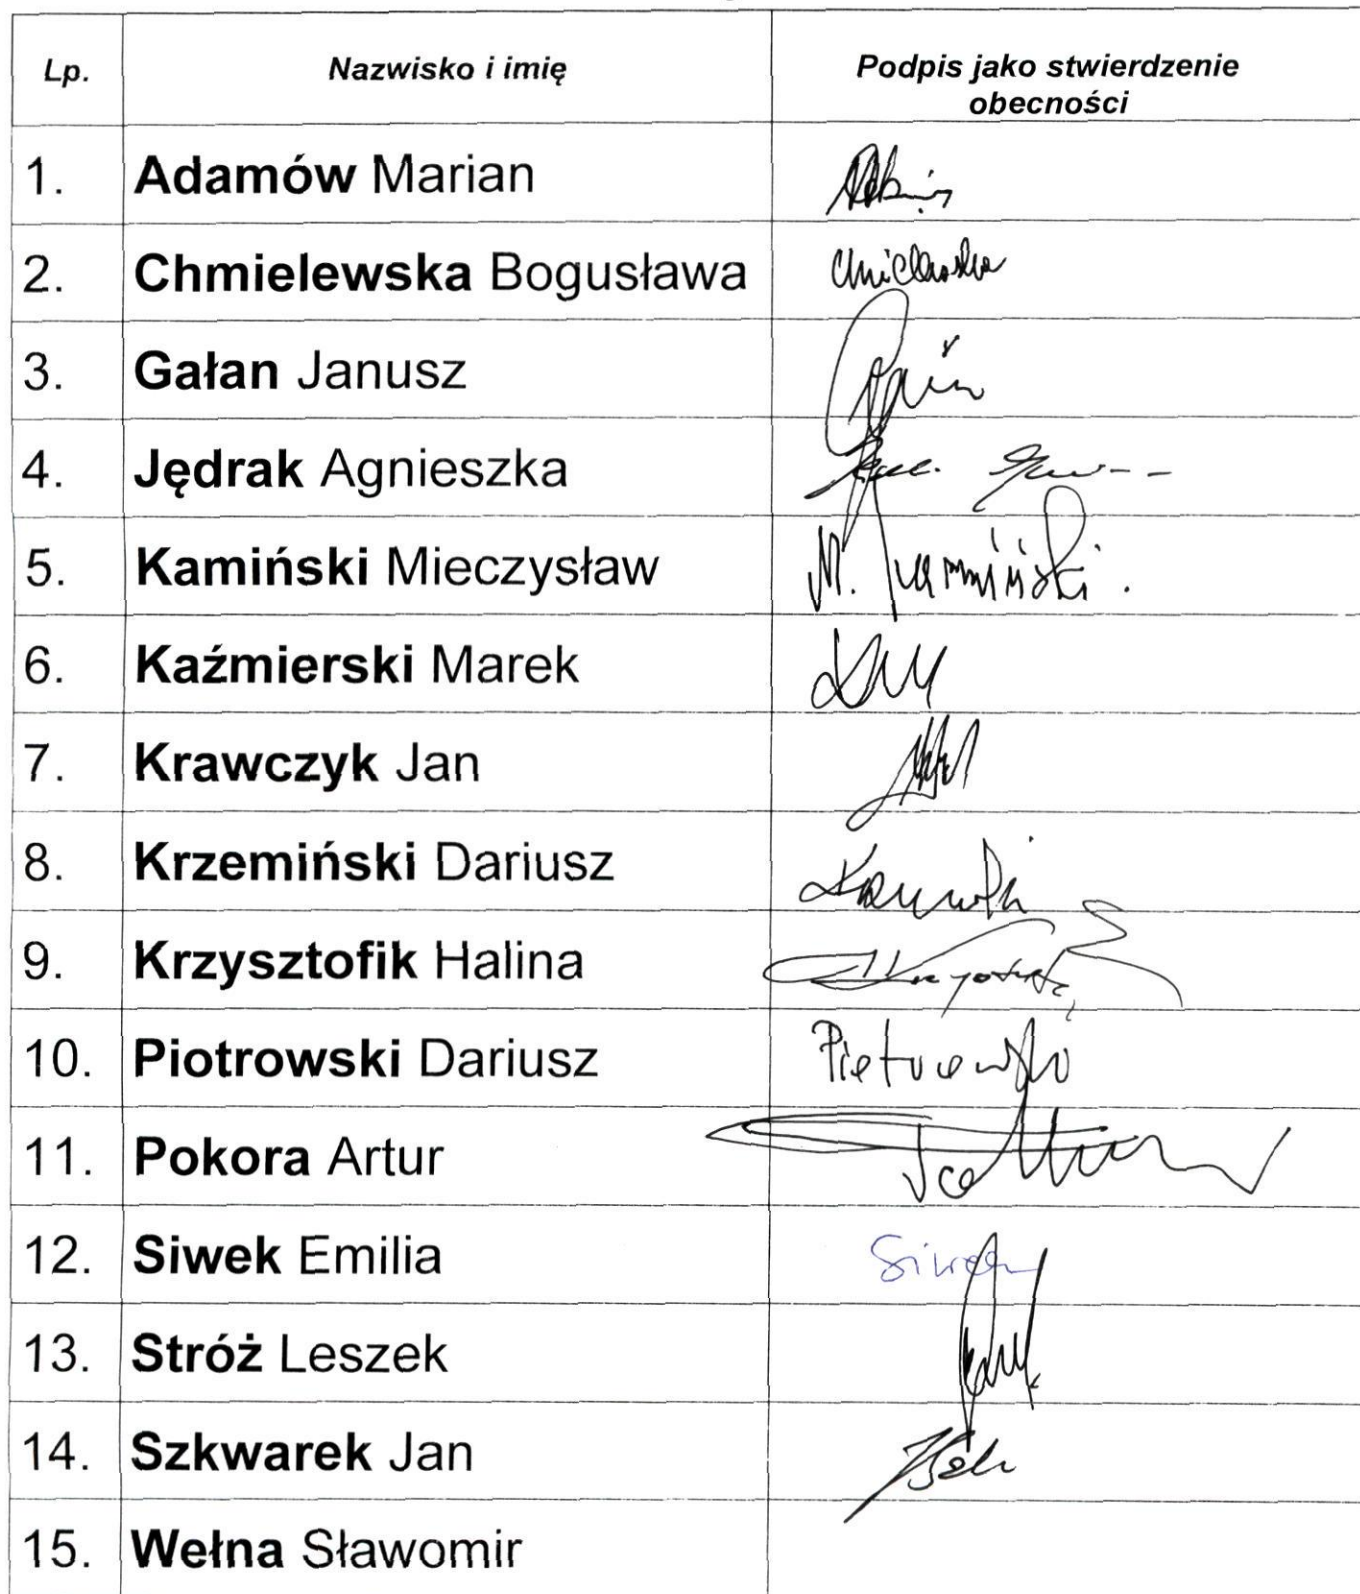 Lp. Nazwisko i imię Podpis jako stwierdzenie
obecności
1. Adamów Marian
2. Chmielewska Bogusława Chmielewska
3. Gałan Janusz
4. Jędrak Agnieszka
5. Kamiński Mieczysław M. Kamiński.
6. Kaźmierski Marek
7. Krawczyk Jan
8. Krzemiński Dariusz
9. Krzysztofik Halina
10. Piotrowski Dariusz Piotrowski
11. Pokora Artur
12. Siwek Emilia Siwek
13. Stróż Leszek
14. Szkwarek Jan
15. Wełna Sławomir